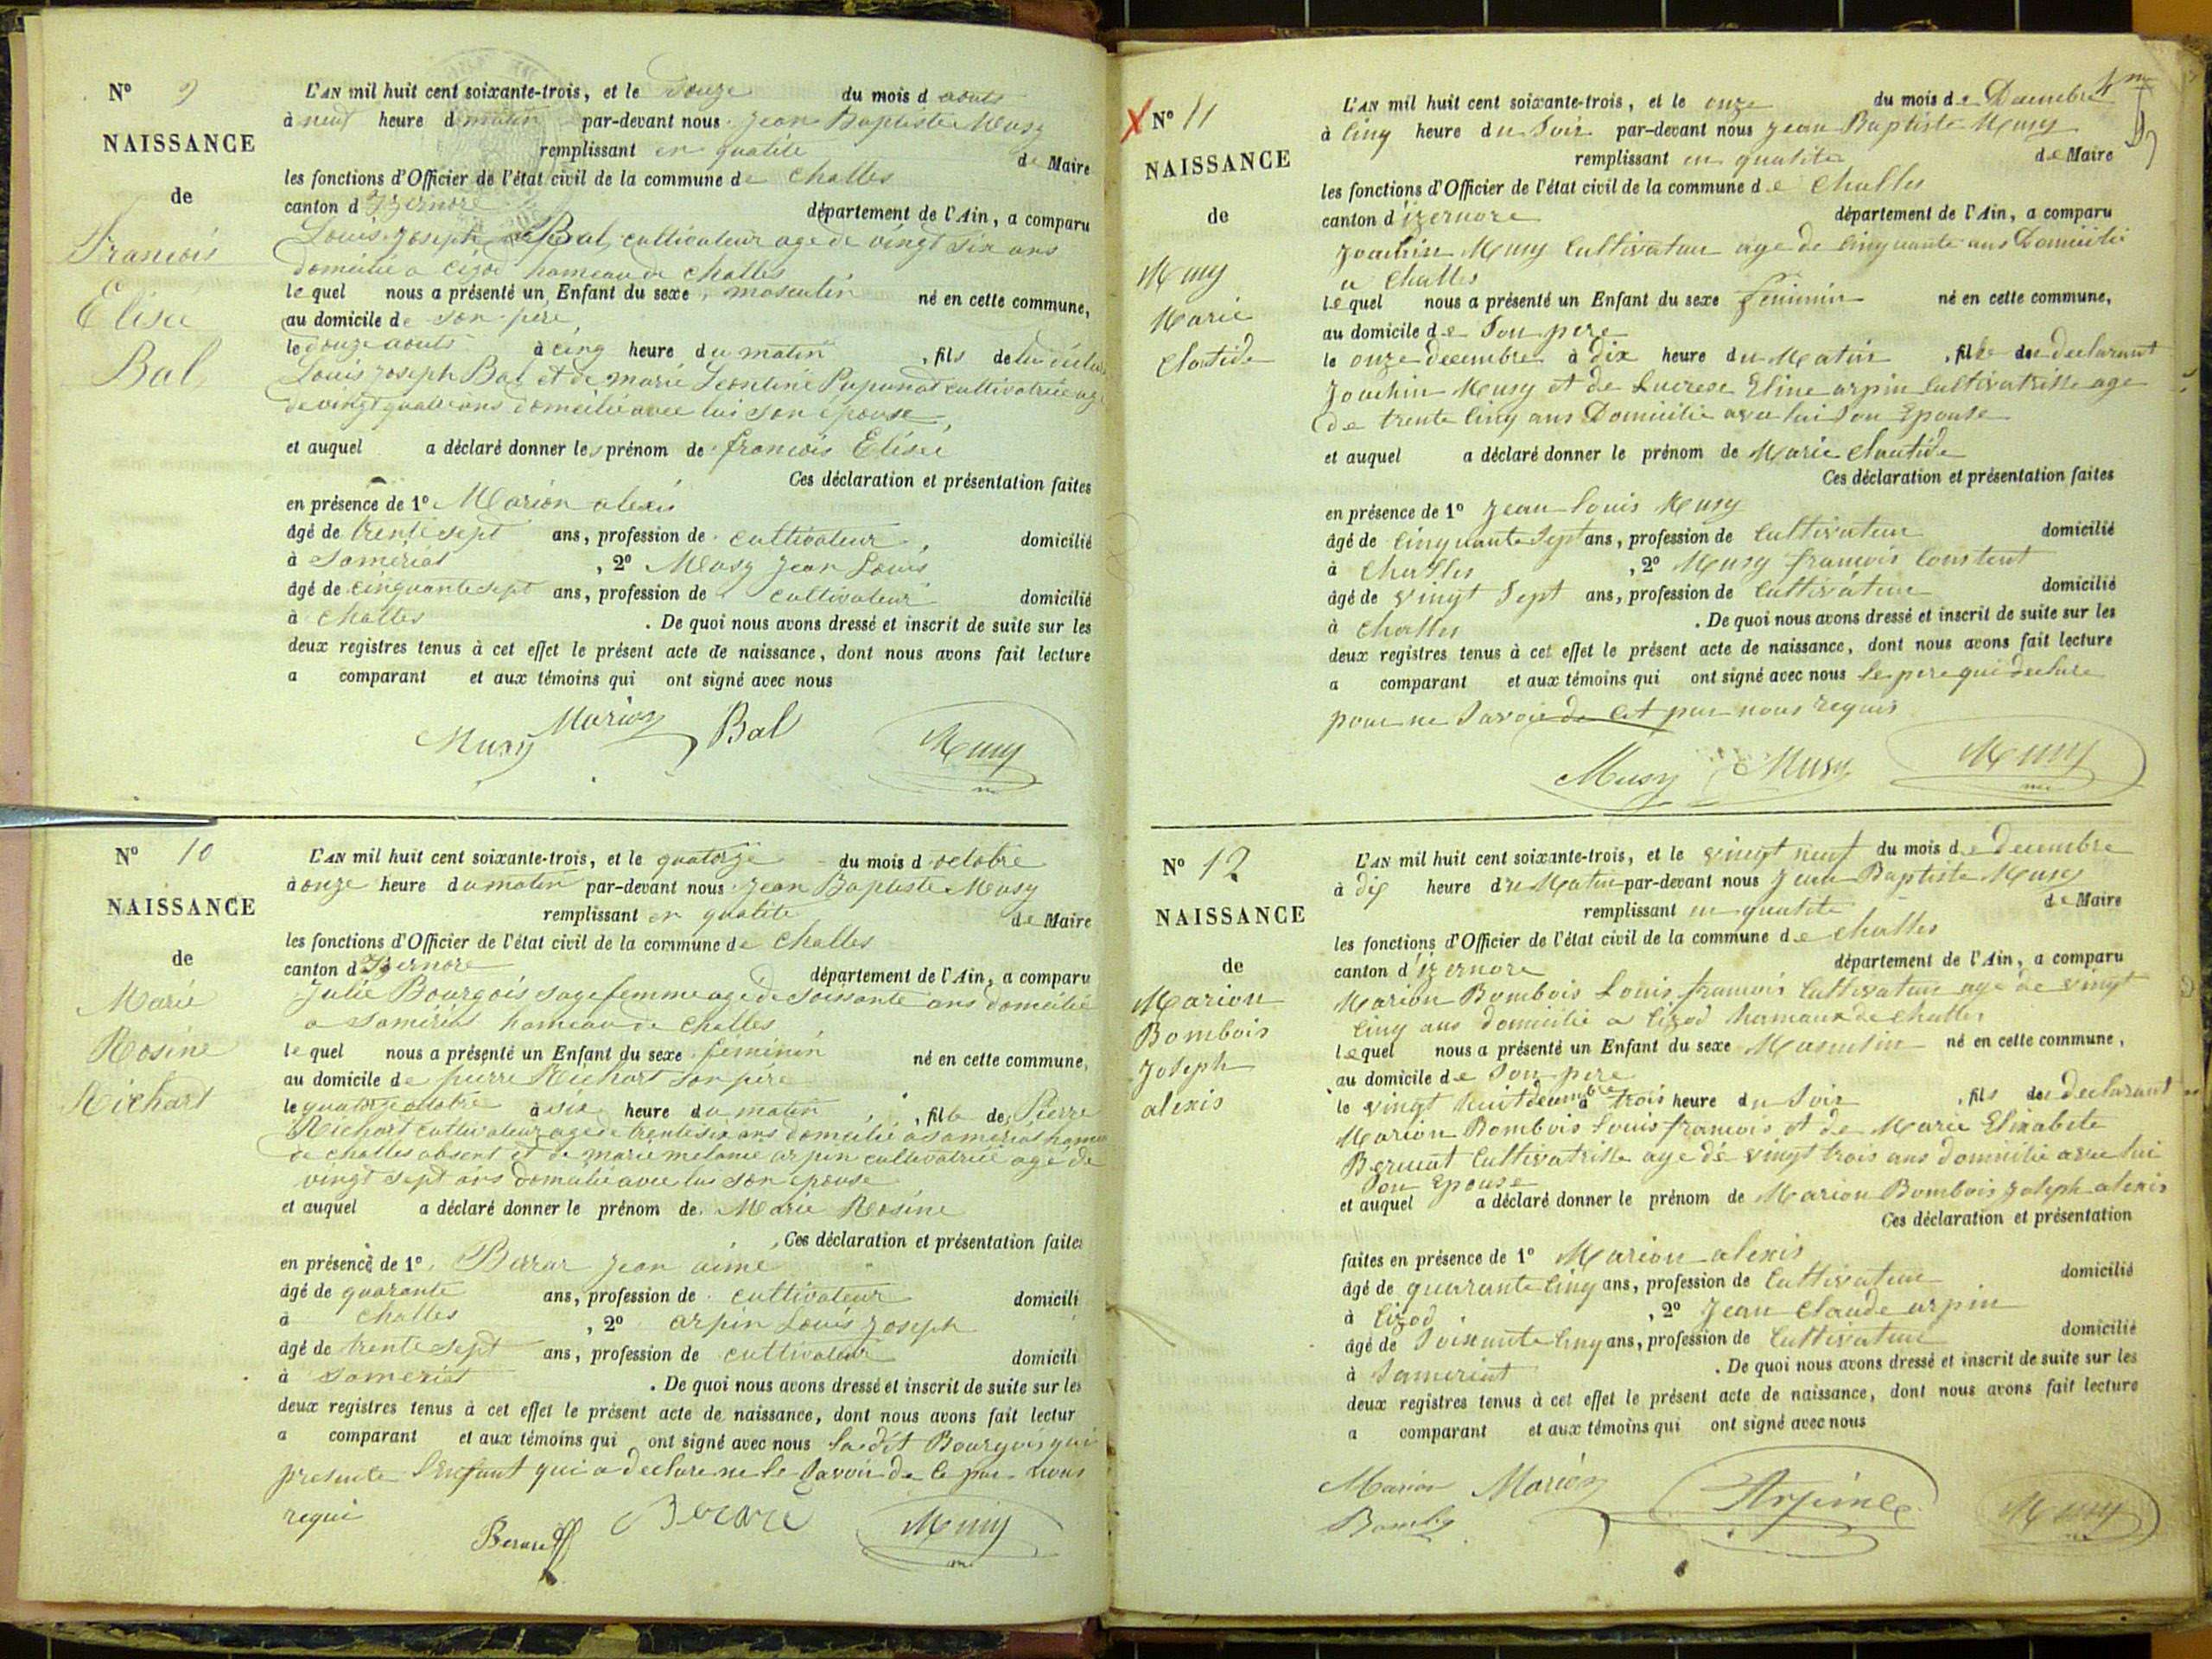 N° 9
NAISSANCE
de
francois
Elisée
Bal
L'AN mil huit cent soixante-trois, et le douze du mois d aouts
à neuf heure d matin par-devant nous Jean Baptiste Musy
remplissant en qualité de Maire
les fonctions d'Officier de l'état civil de la commune de Challes
canton d'Izernore département de l'Ain, a comparu
Louis Joseph Bal, cultivateur age de vingt six ans
domicilié a Cizod hameau de Challes
le quel nous a présenté un Enfant du sexe masculin né en cette commune,
au domicile de son père
le douze aouts à cinq heure du matin , fils de lui déclarant
Louis Joseph Bal et de marie Leontine Puponat cultivatrice age
de vingt quatre ans domicilié avec lui son épouse,
et auquel a déclaré donner les prénom de francois Elisée
Ces déclaration et présentation faites
en présence de 1° Marion alexis
âgé de trente sept ans, profession de cultivateur, domicilié
à Samériat , 2° Musy Jean Louis
âgé de cinquante sept ans, profession de cultivateur domicilié
à Challes . De quoi nous avons dressé et inscrit de suite sur les
deux registres tenus à cet effet le présent acte de naissance, dont nous avons fait lecture
a comparant et aux témoins qui ont signé avec nous
Musy Marion Bal Musy
N° 10
NAISSANCE
de
Marie
Rosine
Richart
L'AN mil huit cent soixante-trois, et le quatorze du mois d octobre
à onze heure du matin par-devant nous Jean Baptiste Musy
remplissant en qualité de Maire
les fonctions d'Officier de l'état civil de la commune de Challes
canton d'Izernore département de l'Ain, a comparu
Julie Bourgois sage femme age de soissante ans domicilié
a Samériat hameau de Challes
le quel nous a présenté un Enfant du sexe féminin né en cette commune,
au domicile de pierre Richart son père
le quatorze octobre à six heure du matin , fille de Pierre
Richart cultivateur age de trente six ans domicilié a Samériat hameau
de challes absent et de marie melanie arpin cultivatrice agé de
vingt sept ans domicilié avec lui son épouse
et auquel a déclaré donner le prénom de Marie Rosine
Ces déclaration et présentation faites
en présence de 1° Berrar Jean aimé
âgé de quarante ans, profession de cultivateur domicili
à challes , 2° arpin Louis Joseph
âgé de trente sept ans, profession de cultivateur domicili
à Samériat . De quoi nous avons dressé et inscrit de suite sur les
deux registres tenus à cet effet le présent acte de naissance, dont nous avons fait lectur
a comparant et aux témoins qui ont signé avec nous la dit Bourgois qui
presente l'Enfant qui a declare ne le Savoir de ce par nous
requi
Berard Musy
X N° 11
NAISSANCE
de
Musy
Marie
Cloutide
L'AN mil huit cent soixante-trois, et le onze du mois de Decembre
à Cinq heure du Soir par-devant nous Jean Baptiste Musy
remplissant en qualite de Maire
les fonctions d'Officier de l'état civil de la commune de Challes
canton d'izernore département de l'Ain, a comparu
Joachin Musy Cultivateur age de Cinquante ans Domicilié
a Challes
le quel nous a présenté un Enfant du sexe feminin né en cette commune,
au domicile de Son pere
le onze decembre à dix heure du Matin , fille du declarant
Joachin Musy et de Lucrese Eline arpin Cultivatrisse age
de trente Cinq ans Domicilie avec lui Son Epouse
et auquel a déclaré donner le prénom de Marie Cloutide
Ces déclaration et présentation faites
en présence de 1° Jean Louis Musy
âgé de Cinquante Sept ans, profession de Cultivateur domicilié
à Challes , 2° Musy francois Constent
âgé de vingt Sept ans, profession de Cultivateur domicilié
à Challes . De quoi nous avons dressé et inscrit de suite sur les
deux registres tenus à cet effet le présent acte de naissance, dont nous avons fait lecture
a comparant et aux témoins qui ont signé avec nous le pere qui declare
pour ne Savoir de Cet par nous requis
Musy Musy Musy
N° 12
NAISSANCE
de
Marion
Bombois
Joseph
alexis
L'AN mil huit cent soixante-trois, et le vingt neuf du mois de Decembre
à dix heure du Matin par-devant nous Jean Baptiste Musy
remplissant en qualite de Maire
les fonctions d'Officier de l'état civil de la commune de Challes
canton d'izernore département de l'Ain, a comparu
Marion Bombois Louis francois Cultivateur age de vingt
Cinq ans domicilié a Cizod hamaux de Challes
le quel nous a présenté un Enfant du sexe Masculin né en cette commune,
au domicile de Son pere
le vingt huit decembre à trois heure du Soir , fils du declarant
Marion Bombois Louis francois et de Marie Elisabete
Cultivatrisse age de vingt trois ans domicilie avec lui
Son Epouse
et auquel a déclaré donner le prénom de Marion Bombois Joseph alexis
Ces déclaration et présentation
faites en présence de 1° Marion alexis
âgé de quarante Cinq ans, profession de Cultivateur domicilié
à Cizod , 2° Jean Claude arpin
âgé de Soixante Cinq ans, profession de Cultivateur domicilié
à Sameriat . De quoi nous avons dressé et inscrit de suite sur les
deux registres tenus à cet effet le présent acte de naissance, dont nous avons fait lecture
a comparant et aux témoins qui ont signé avec nous
Marion Marion Arpin Musy